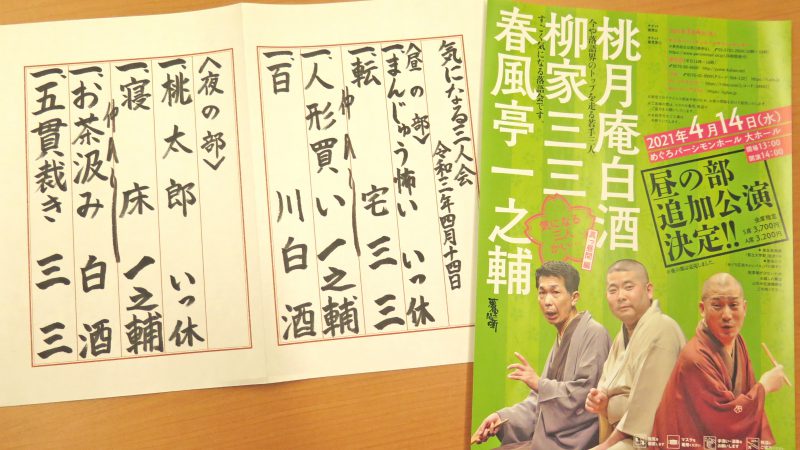 気になる三人会 令和三年四月十四日
〈昼の部〉
一、まんじゅう怖い
一、転宅 三三
仲入り
一、人形買い 一之輔
一、百川 白酒
〈夜の部〉
一、桃太郎 いっ休
一、寝床 一之輔
仲入り
一、お茶汲み 白酒
一、五貫裁き 三三
桃月庵白酒
柳家三三
春風亭一之輔
今や落語界のトップを走る若手三人
すごく気になる落語会です。
気になる三人かい
2021年4月14日(水)
めぐろパーシモンホール 大ホール
開場13:00
開演14:00
昼の部
追加公演
決定!!
全席指定
S席 3,700円
A席 3,200円